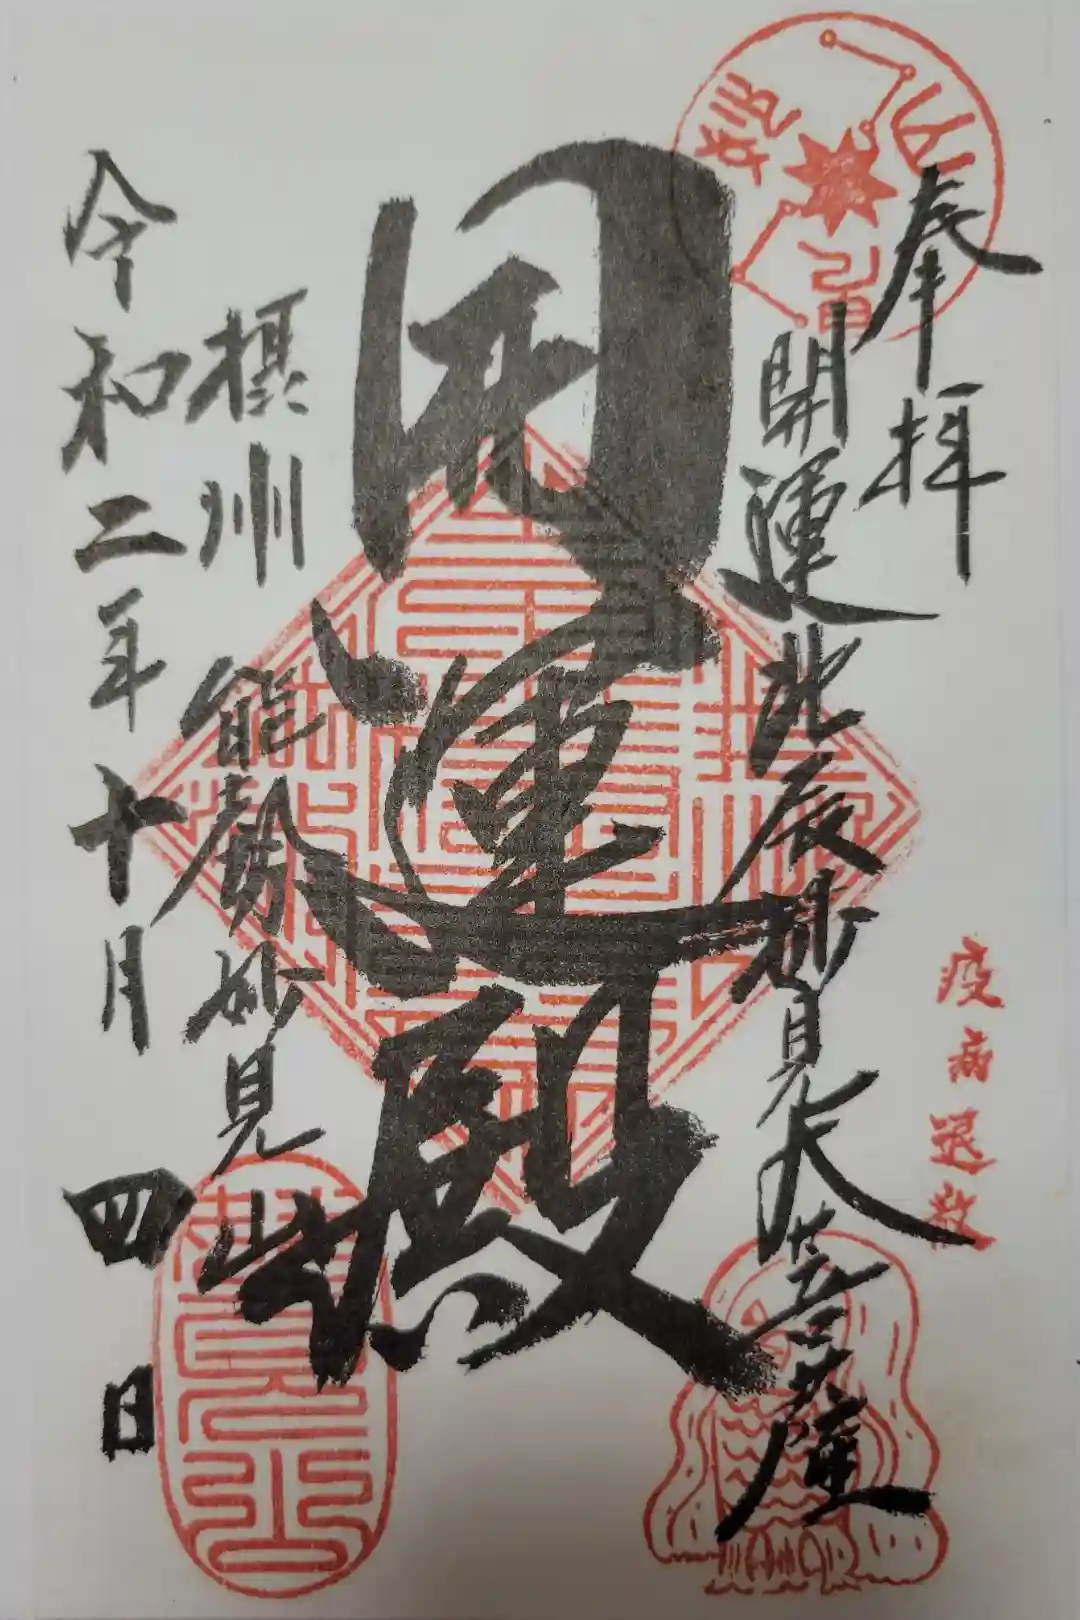 奉拝
開運北辰妙見大菩薩
疫病退散
開運殿
摂州 能勢妙見山
令和二年十月 四日